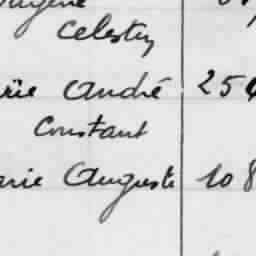 Celestin
André 25
Constant
Auguste 108